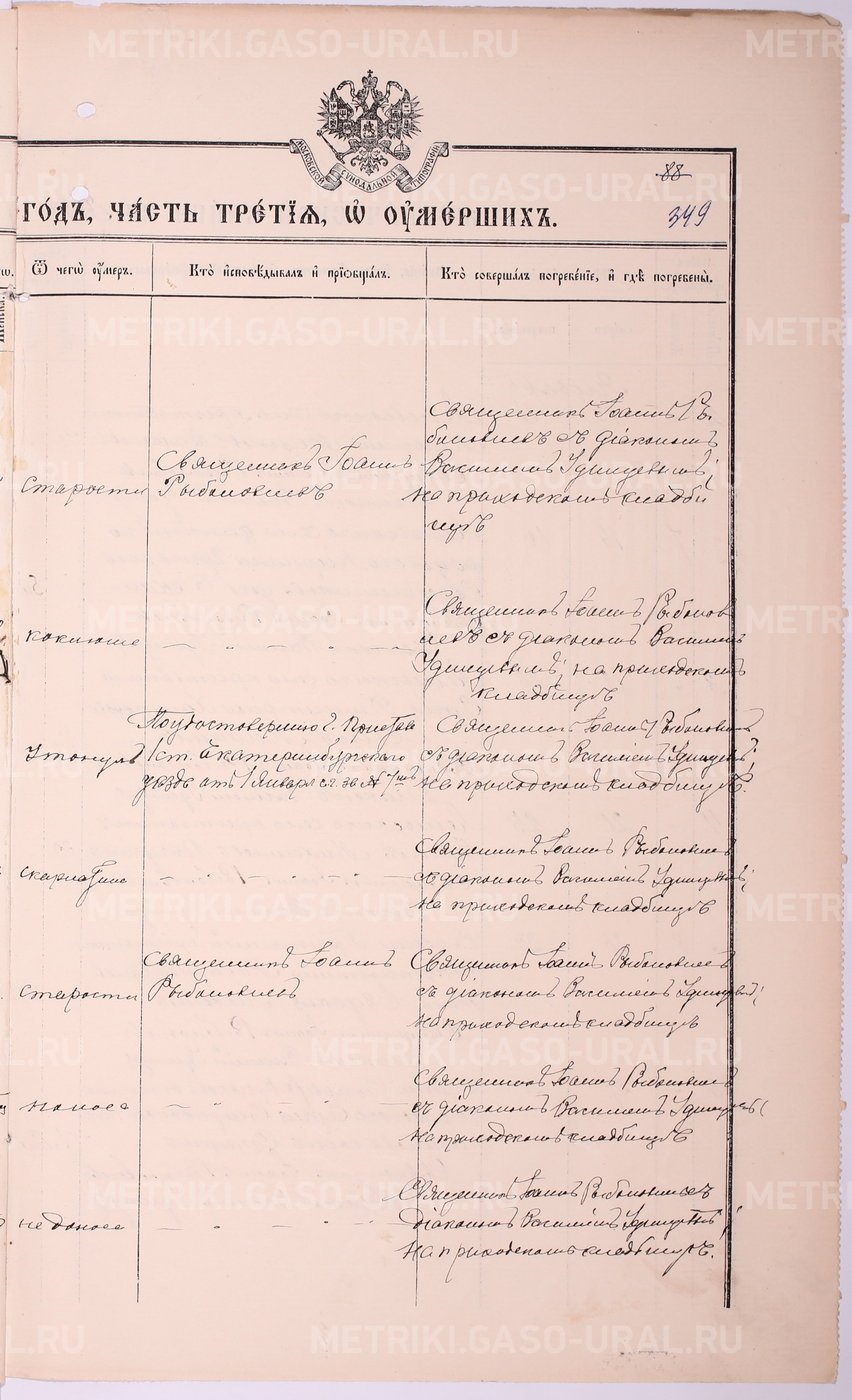 METRIKI.GASO-URAL.RU
МОСКОВСКОЙ СѴНОДАЛЬНОЙ ТИПОГРАФІИ
88
349
ГОДЪ, ЧАСТЬ ТРЕТІѦ, Ѡ ОУМЕРШИХЪ.
Ѿ чегѡ оумеръ.
Кто исповѣдывалъ и приѡбщалъ.
Кто совершалъ погребеніе, и гдѣ погребены.
старости
Священникъ Іоаннъ
Рыболовлевъ
Священникъ Іоаннъ Ры
боловлевъ съ діакономъ
Василіемъ Удинцевымъ;
на приходскомъ кладби
щѣ
коклюша
Священникъ Іоаннъ Рыболов
левъ съ діакономъ Василіемъ
Удинцевымъ; на приходскомъ
кладбищѣ
утонулъ
По удостоверенію г. Пристава
1 ст. Екатеринбургскаго
уезда отъ 1 Января с.г. за №
Священникъ Іоаннъ Рыболовлевъ
съ діакономъ Василіемъ Удинцевымъ;
на приходскомъ кладбищѣ.
скарлатина
Священникъ Іоаннъ Рыболовлевъ
съ діакономъ Василіемъ Удинцевымъ;
на приходскомъ кладбищѣ
старости
Священникъ Іоаннъ
Рыболовлевъ
Священникъ Іоаннъ Рыболовлевъ
съ діакономъ Василіемъ Удинцевымъ;
на приходскомъ кладбищѣ
поноса
Священникъ Іоаннъ Рыболовлевъ
съ діакономъ Василіемъ Удинцевымъ;
на приходскомъ кладбищѣ
недоноса
Священникъ Іоаннъ Рыболовлев съ
діакономъ Василіемъ Удинцевымъ;
на приходскомъ кладбищѣ.